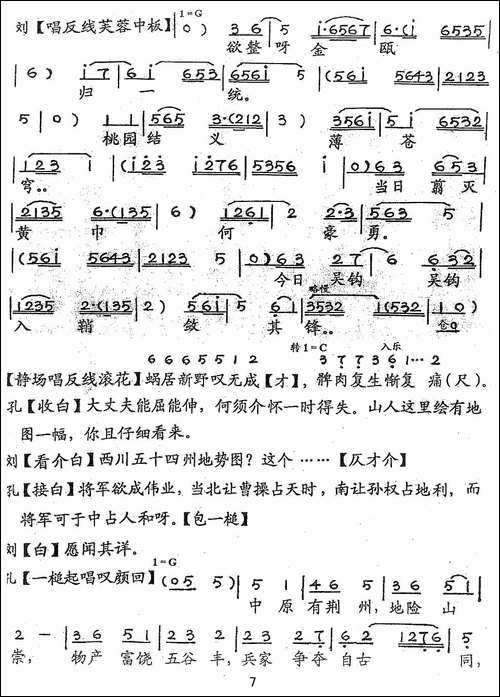 刘【唱反线芙蓉中板】1=G ( 0 ) 3 6 | 5 i·6567 | 6·(i 6535 |
欲整呀 金 瓯
| 6 ) i 7 | 6 i 653 | 656i 5 | (56i 5643 | 2123
归 一 统。
5 | 0 ) 1 1 | 565 3·(212 | 3 ) 356i | 5 i 6532 |
桃园结 义 薄 苍
| 123 1 | (i23 i276 | 5356 i | 0 ) 63 | 653 |
穹.. 当日 翦灭
| 2135 6·(135 | 6 ) 1261 | 2 2·3 | 563 5 |
黄 巾 何 豪 勇。
| (56i 5643 | 2123 5 | 0 ) 63 | 27 | 6 632 |
今日 吴钩 吴钩
略慢
| 1235 2·(135 | 2 ) 56i | 61 | 3532 1(532 | 1 0 )
入 鞘 敛 其 锋.. 仓0
转1=C 入乐
6 6 6 5 5 1 2 3 7 7 3 6 1…2
【静场唱反线滚花】蜗居新野叹无成【才】，髀肉复生惭复 痛(尺)。
孔【收白】大丈夫能屈能伸，何须介怀一时得失。山人这里绘有地
图一幅，你且仔细看来。
刘【看介白】西川五十四州地势图？这个 ……【仄才介】
孔【接白】将军欲成伟业，当北让曹操占天时，南让孙权占地利，而
将军可于中占人和呀。【包一槌】
刘【白】愿闻其详。
孔【一槌起唱叹颜回】1=G (05 5) | 5 1 | 46 5 | 36 51 |
中 原 有荆 州，地险 山
2 — | 36 51 | 23 2 | 23 27 | 62 1276 | 5
崇， 物产 富饶 五谷 丰，兵家 争夺 自古 同，
7